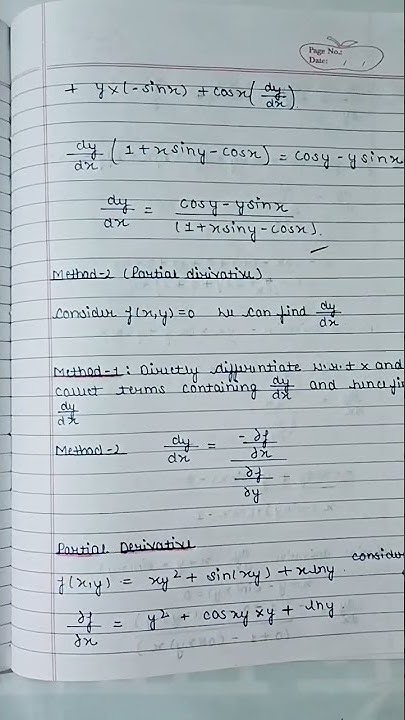 Page No.:
Date: / /
+ y×(-sinx) + cosx(dy/dx)
dy/dx (1 + xsiny - cosx) = cosy - ysinx
dy/dx = cosy - ysinx / (1 + xsiny - cosx).
Method-2 (Partial dirivative).
Consider f(x,y)=0 we can find dy/dx
Method-1: Directly differentiate w.r.t x and
collect terms containing dy/dx and hence
dy/dx
Method-2 dy/dx = -∂f/∂x / ∂f/∂y
Partial Derivative
consider
f(x,y) = xy² + sin(xy) + xlny.
∂f/∂x = y² + cosxy×y + lny.